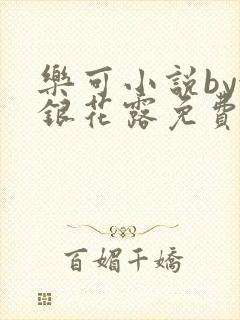 樂可小説by
銀花露免費
百媚千嬌